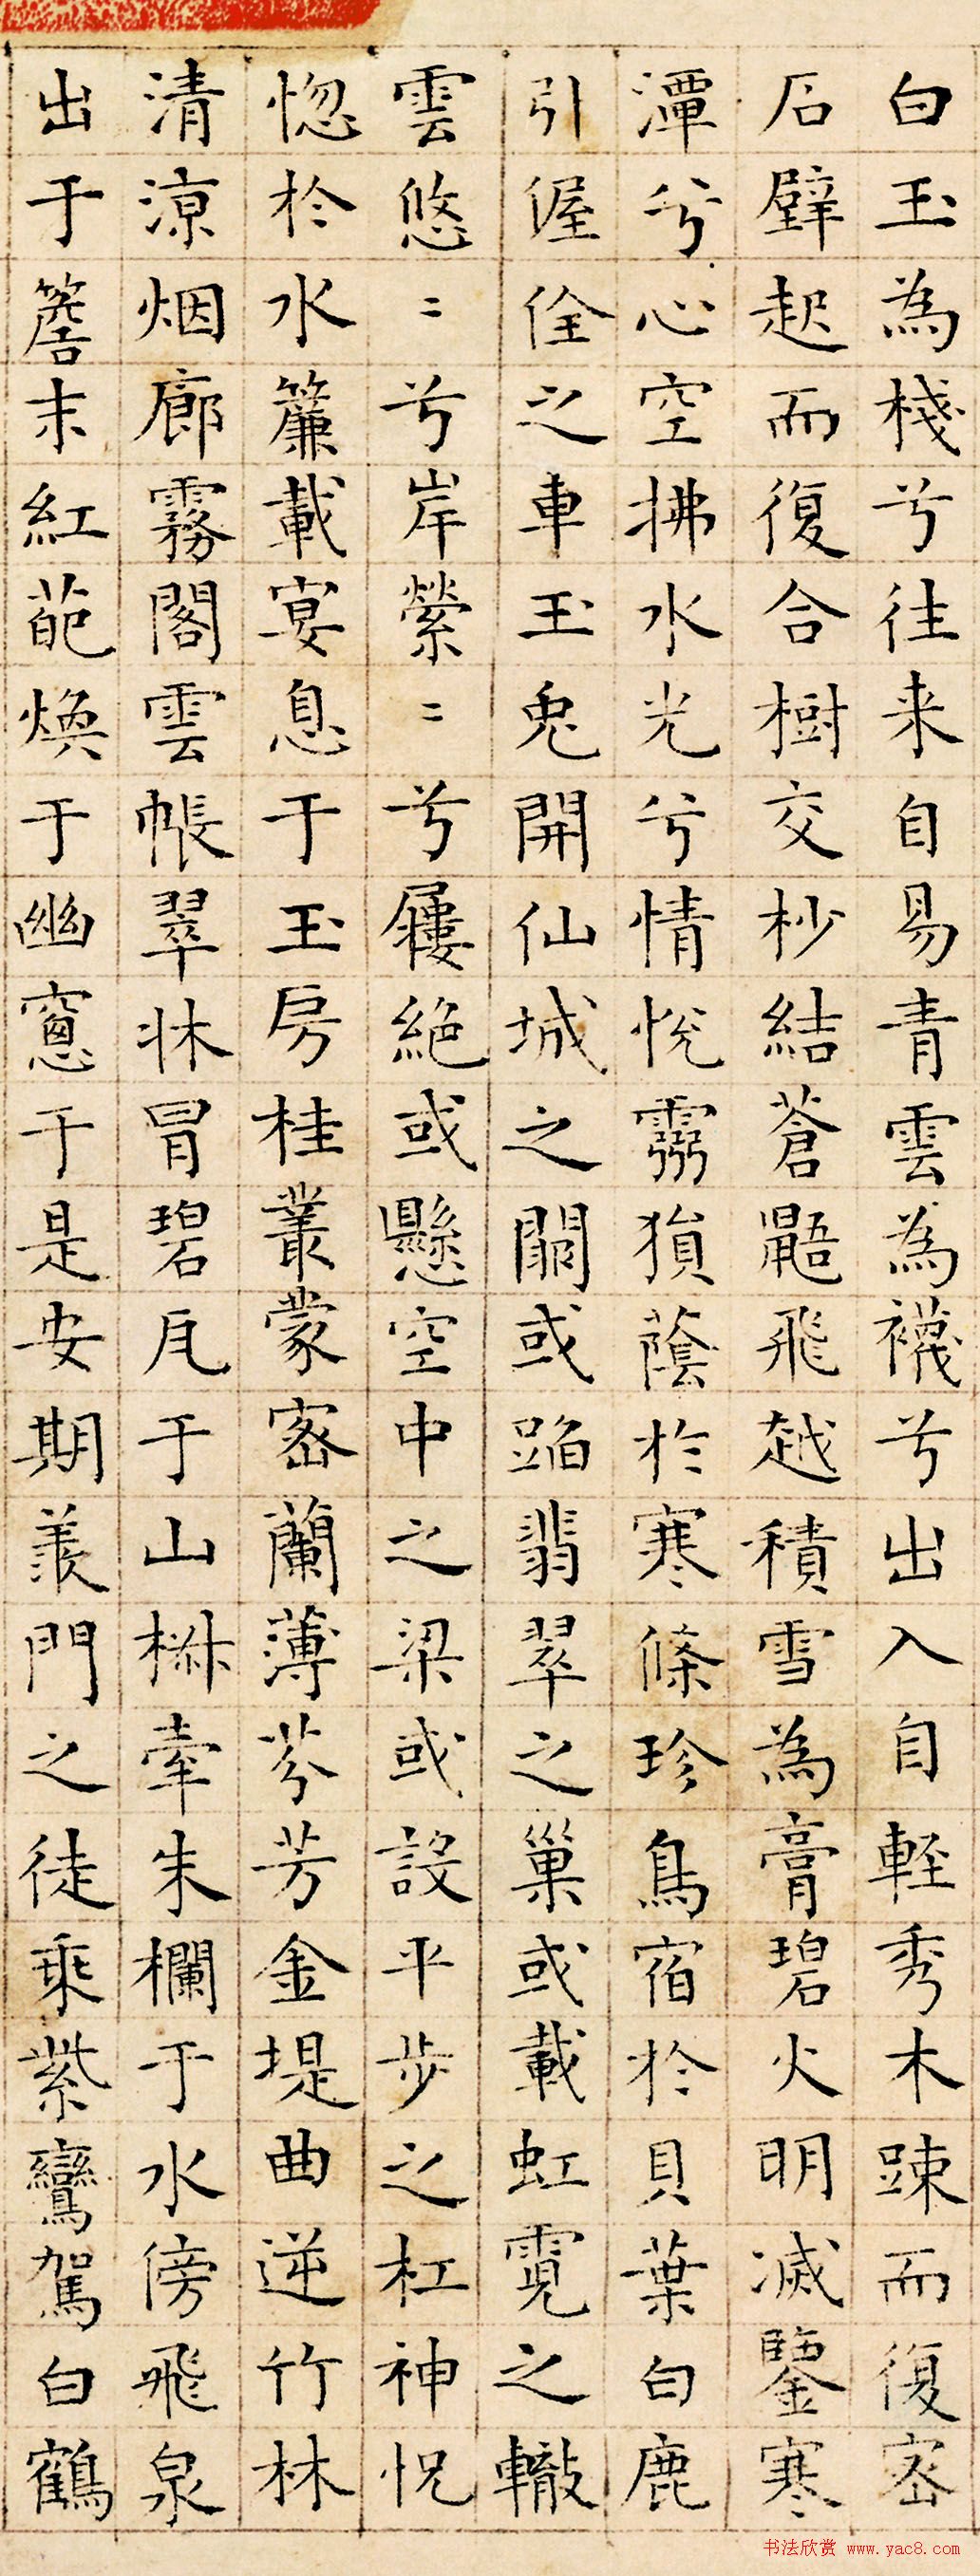 白玉為棧兮往来自易青雲為襪兮出入自輕秀木踈而復密
石壁起而復合樹交杪結蒼鼯飛越積雪為膏碧火明滅鑒寒
潭兮心空拂水光兮情悅霧猿蔭於寒條珍鳥宿於貝葉白鹿
引偓佺之車玉兎開仙城之闕或踏翡翠之巢或載虹霓之轍
雲悠〻兮岸縈〻兮屨絕或懸空中之梁或設平步之杠神怳
惚於水簾載宴息于玉房桂叢蒙密蘭薄芬芳金堤曲逆竹林
清涼烟廊霧閣雲帳翠牀冒碧瓦于山椒牽朱欄于水傍飛泉
出于簷末紅葩煥于幽窻于是安期羨門之徒乘紫鸞駕白鶴
书法欣赏 www.yac8.com